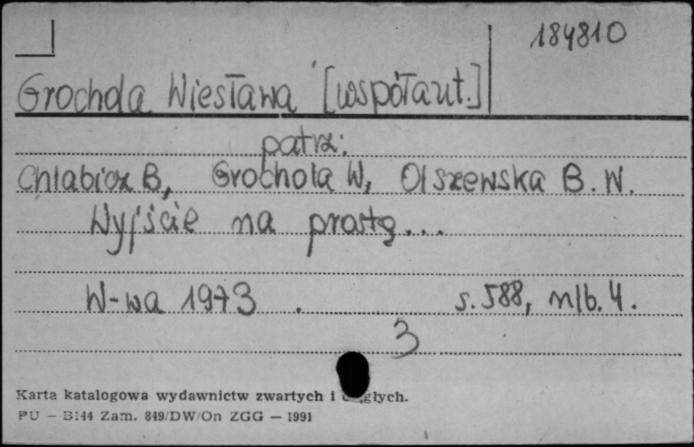 184810
Grochola Wiesława [współaut.]
patrz:
Chlabicz B., Grochola W., Olszewska B. W.
Wyjście na prostą...
W-wa 1973 . s. 588, nlb. 4.
3
Karta katalogowa wydawnictw zwartych i ciągłych.
PU – B144 Zam. 849/DW/On ZGG – 1991